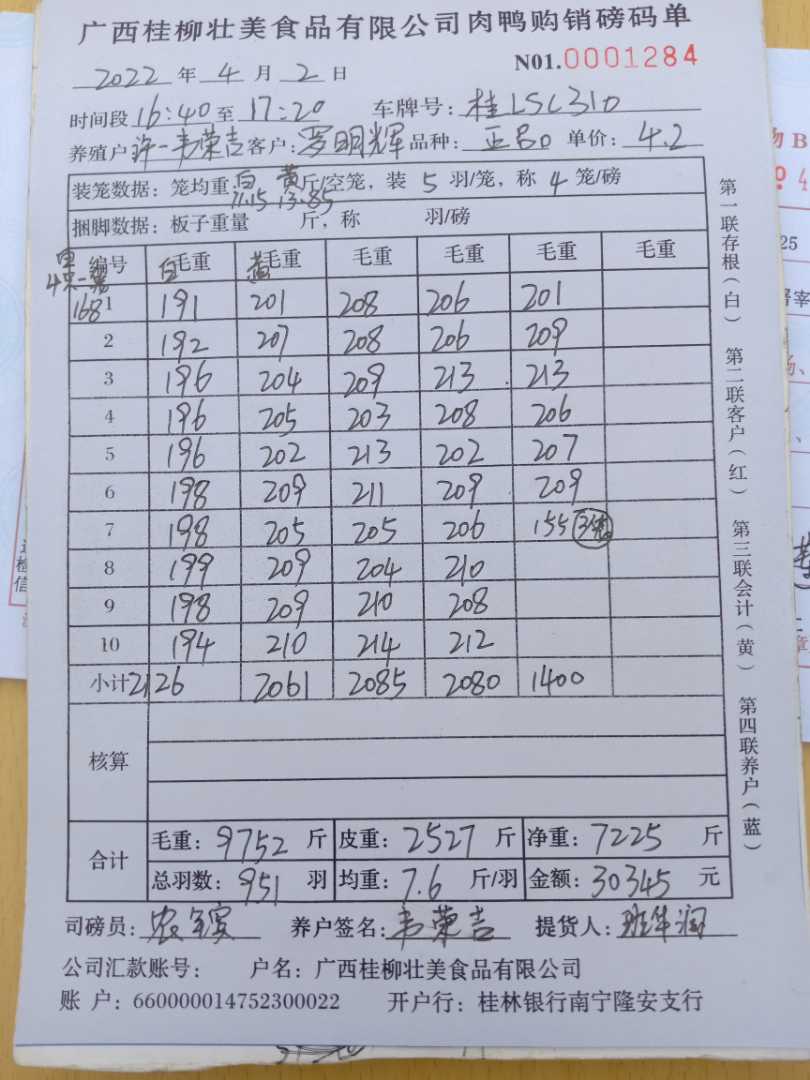 广西桂柳壮美食品有限公司肉鸭购销磅码单
2022 年 4 月 2 日 N01.0001284
时间段 16:40 至 17:20 车牌号: 桂LSL310
养殖户 许一韦荣吉 客户: 罗明辉 品种: 正品 单价: 4.2
装笼数据: 笼均重 白 11.15 黄 13.85 斤/空笼, 装 5 羽/笼, 称 4 笼/磅
捆脚数据: 板子重量 斤, 称 羽/磅
编号 白 毛重 黄 毛重 毛重 毛重 毛重 毛重
4只一笼
168
1 191 201 208 206 201
2 192 207 208 206 209
3 196 204 209 213 213
4 196 205 203 208 206
5 196 202 213 202 207
6 198 209 211 209 209
7 198 205 205 206 155 3笼
8 199 209 204 210
9 198 209 210 208
10 194 210 214 212
小计 2126 2061 2085 2080 1400
核算
合计 毛重: 9752 斤 皮重: 2527 斤 净重: 7225 斤
总羽数: 951 羽 均重: 7.6 斤/羽 金额: 30345 元
司磅员: 养户签名: 韦荣吉 提货人: 班华润
公司汇款账号: 户名: 广西桂柳壮美食品有限公司
账 户: 660000014752300022 开户行: 桂林银行南宁隆安支行
第一联存根(白) 第二联客户(红) 第三联会计(黄) 第四联养户(蓝)